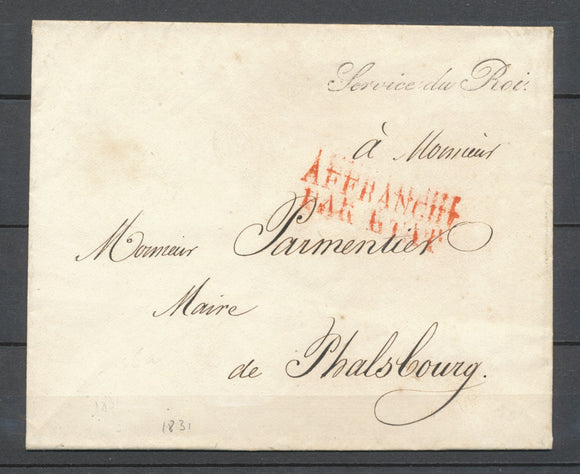 Service du Roi.
à Monsieur
AFFRANCHI
PAR ETAT
Monsieur Parmentier
Maire
de Phalsbourg.
1831